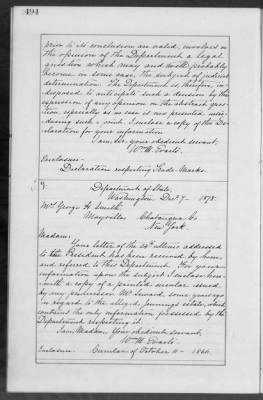 494
prior to its conclusion are valid, involves in
the opinion of the Department a legal
question which may and will probably
become in some case, the subject of judicial
determination. The Department is, therefore, in-
disposed to anticipate such a decision by the
expression of any opinion on the abstract ques-
tion, especially as no case is now presented
during such a
laration for your information.
I am, Sir, your obedient servant,
Wm. M. Evarts.
Enclosure:
Declaration respecting Trade Marks.
Department of State,
Washington, Dec. 7 1878.
Mrs. George H. Smith,
Mayville, Chatauqua Co
New York.
Madam:
Your letter of the 30th ultimo addressed
to the President has been received by him
and referred to this Department. For your
information upon the subject I enclose here-
with a copy of a printed circular issued
by my predecessor Mr. Seward, some years ago
in regard to the alleged Jennings estate, which
contains the only information possessed by the
Department respecting it.
I am, Madam, Your obedient servant,
Wm. M. Evarts.
Enclosure: Circular of October 11 1866.